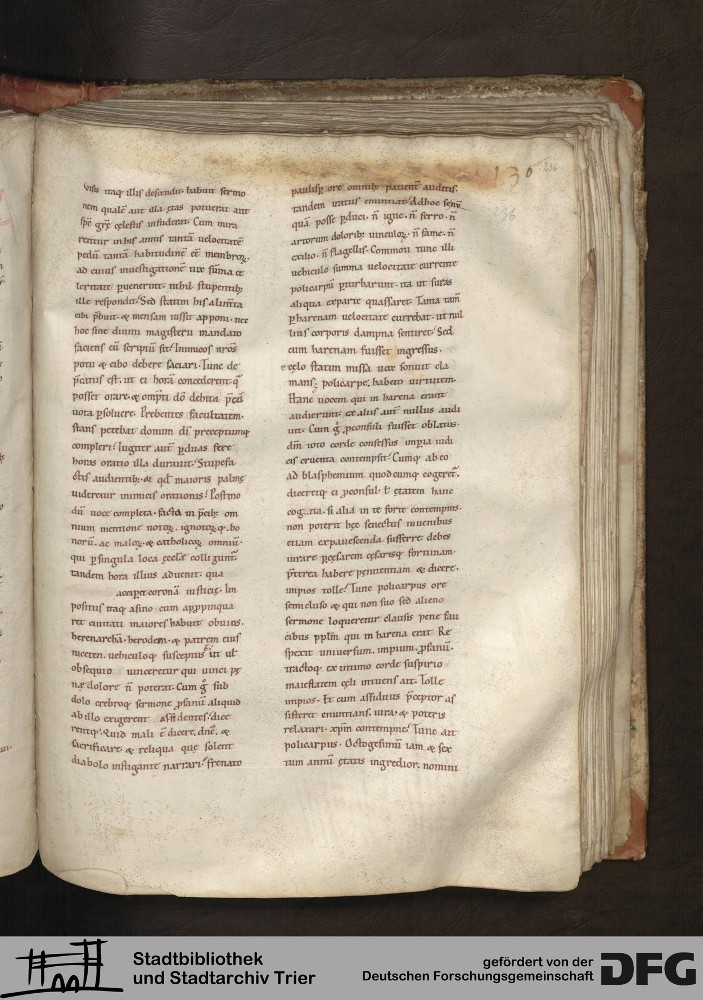 130
236
236
Visis itaq; illis descendit. habuit sermo
nem qualē aut illa ętas potuerat aut
sp̄c grē celestis infuderat. Cum mira
rentur in his annis tantā uelocitatē
pedū tantā habitudinē eē membroꝝ.
ad cuius inuestigationē uix sūma ce
leritate puenerint. nihil stupentibꝫ
ille respondit. Sed statim his alimīta
cibi p̄buit. & mensam iussit apponi. nec
hoc sine diuini magisterii mandato
faciens cū scriptū sit. Inimicos nr̄os
potu & cibo debere saciari. Tunc de
p̄catus est. ut ei horā concederent. q̄
posset orare. & omp̄ti dō debita p̄cū
uota psoluere. Prebentes facultatem.
stans petebat domum dī preceptumq;
compleri. Iugiter aut̄ p duas fere
horas oratio illa durauit. Stupefa
ctis audientibꝫ. & qd̄ maioris palmę
uideretur inimicis orationis. Postmo
dū uoce completa. facta in p̄cibꝫ om
nium mentione notoꝝ. ignotoꝝq;. bo
norū. ac maloꝝ. & catholicoꝝ omniū.
qui p singula loca ęcclāe colligunt̄.
tandem hora illius aduenit. qua
acciperet coronā iusticię. Im
positus itaq; asino. cum appropinqua
ret ciuitati maiores habuit obuios.
herenarchā. herodem. & patrem eius
niceten. uehiculoq; susceptus ē. ut ul̄
obsequio uinceretur qui uinci pę
nę dolore n̄ poterat. Cum ḡ sub
dolo crebroq; sermone psanū aliquid
ab illo exigerent assidentes. dice
rentq;. Quid mali ē dicere. dn̄e. &
sacrificare. & reliqua quę solent
diabolo instigante narrari. frenato
paulisp ore omnibꝫ patient̄ auditis.
tandem uictus enuntiat. Adhoc senē
quā posse pduci. n̄ igne. n̄ ferro. n̄
artorum doloribꝫ uinculoꝝ. n̄ fame. n̄
exilio. n̄ flagellis. Commoti tunc illi
uehiculo summa uelocitate currente
policarpū pturbarunt. ita ut suras
aliqua ex parte quassaret. Tanta tam̄
p harenam uelocitate currebat. ut nul
lius corporis dampna sentiret. Sed
cum harenam fuisset ingressus.
e cęlo statim missa uox sonuit cla
mans. policarpe. habeto uirtutem.
Hanc uocem qui in harena erant
audierunt. ex aliis aut̄ nullus audi
uit. Cum ḡ pconsuli fuisset oblatus.
dn̄m toto corde confessus impia iudi
cis cruenta contempsit. Cumq; ab eo
ad blasphemium quodcumq; cogeret̄.
diceretq; ei pconsul. t̄ ętatem hanc
cogita. si alia in te forte contempnis.
non poterit hęc senectus iuuenibus
etiam expauescenda sufferre. debes
iurare p cęsarem cęsarisq; fortunam.
p̄terea habere pęnitentiam & dicere.
impios tolle. Tunc policarpus ore
semicluso & qui non suo sed alieno
sermone loqueretur clausis pene fau
cibus pplm̄ qui in harena erat Re
spexit uniuersum. impium. psanū.
tractoq; ex intimo corde suspirio
maiestatem cęli intuens ait. Tolle
impios. Et cum assiduus p̄ceptor as
sisteret enuntians. iura. & poteris
relaxari. xp̄m contempne. Tunc ait
policarpus. Octogesimū iam & sex
tum annū ętatis ingredior. nomini
Stadtbibliothek
und Stadtarchiv Trier
gefördert von der
Deutschen Forschungsgemeinschaft
DFG